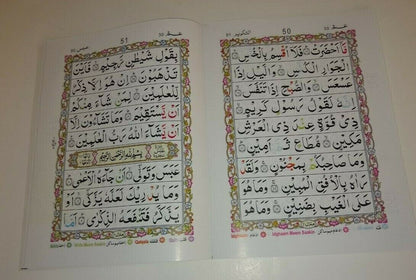 50
مَّاۤ اَحْضَرَتْ فَلَاۤ اُقْسِمُ بِالْخُنَّسِ
الْجَوَارِ الْكُنَّسِ وَالَّيْلِ اِذَا
عَسْعَسَ وَالصُّبْحِ اِذَا تَنَفَّسَ
اِنَّهٗ لَقَوْلُ رَسُوْلٍ كَرِيْمٍ
ذِيْ قُوَّةٍ عِنْدَ ذِي الْعَرْشِ
مَكِيْنٍ مُّطَاعٍ ثَمَّ اَمِيْنٍ
وَمَا صَاحِبُكُمْ بِمَجْنُوْنٍ وَلَقَدْ
رَاٰهُ بِالْاُفُقِ الْمُبِيْنِ وَمَا هُوَ
عَلَى الْغَيْبِ بِضَنِيْنٍ وَمَا هُوَ
Meem Saakin
51
بِقَوْلِ شَيْطٰنٍ رَّجِيْمٍ فَاَيْنَ
تَذْهَبُوْنَ اِنْ هُوَ اِلَّا ذِكْرٌ
لِّلْعٰلَمِيْنَ لِمَنْ شَآءَ مِنْكُمْ
اَنْ يَّسْتَقِيْمَ وَمَا تَشَآءُوْنَ اِلَّاۤ
اَنْ يَّشَآءَ اللّٰهُ رَبُّ الْعٰلَمِيْنَ
بِسْمِ اللّٰهِ الرَّحْمٰنِ الرَّحِيْمِ
عَبَسَ وَتَوَلّٰىۤ اَنْ جَآءَهُ الْاَعْمٰى
وَمَا يُدْرِيْكَ لَعَلَّهٗ يَزَّكّٰىۤ اَوْ
يَذَّكَّرُ فَتَنْفَعَهُ الذِّكْرٰى اَمَّا
Meem Saakin Qalqala